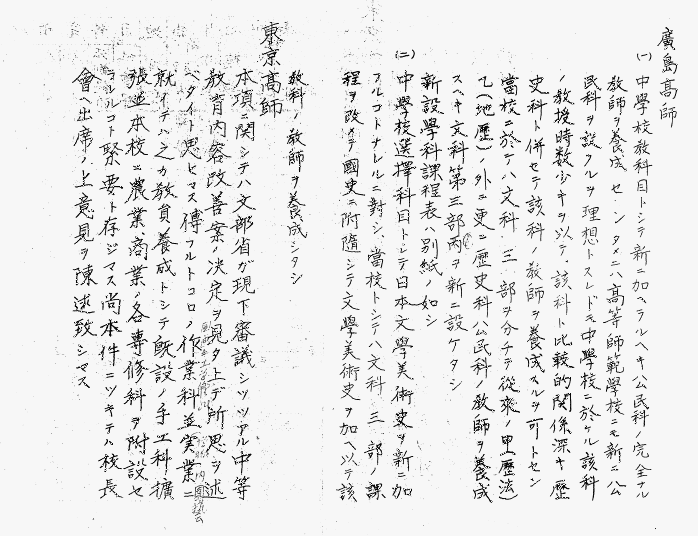 廣島高師
(一) 中學校教科目トシテ新ニ加ヘラルヘキ公民科ノ完全ナル
教師ヲ養成センタメニハ高等師範學校ニモ新ニ公
民科ヲ設クルヲ理想トスレドモ中學校ニ於ケル該科
ノ教授時数少キヲ以テ、該科ト比較的関係深キ歴
史科ト併セテ該科ノ教師ヲ養成スルヲ可トセン
當校ニ於テハ文科三部ヲ分チテ從來ノ甲(歴法)
乙(地歴)ノ外ニ更ニ歴史科公民科ノ教師ヲ養成
スヘキ文科第三部丙ヲ新ニ設ケタシ
新設學科課程表ハ別紙ノ如シ
(二) 中學校選擇科目トシテ日本文學美術史ヲ新ニ加
フルコトナレルニ對シ、當校トシテハ文科三部ノ課
程ヲ改メテ國史ニ附隨シテ文學美術史ヲ加ヘ以テ該
教科ノ教師ヲ養成シタシ
東京高師
本項ニ関シテハ文部省ガ現下審議シツツアル中等
教育内容改善案ノ決定ヲ見タ上デ所思ヲ述
ベタイト思ヒマス傳フルトコロノ作業科並実業ニ
就イテハ之カ教員養成トシテ既設ノ手工科擴
張並本校ニ農業、商業ノ各専修科ヲ附設セ
ラルルコト緊要ト存ジマス尚本件ニツキテハ校長
會ヘ出席ノ上意見ヲ陳述致シマス